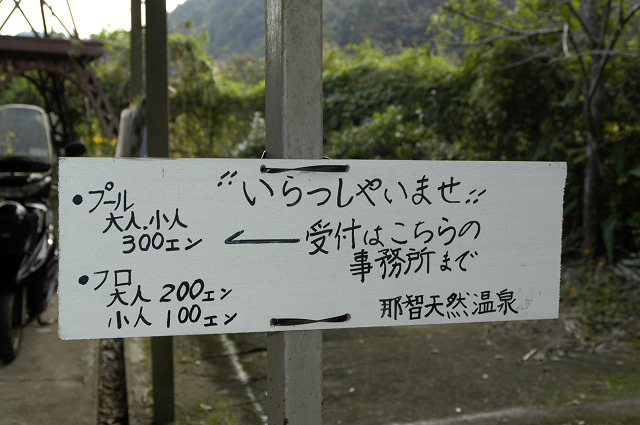 •プール
大人.小人
300エン
•フロ
大人 200エン
小人 100エン
〃いらっしゃいませ〃
←受付はこちらの
事務所まで
那智天然温泉